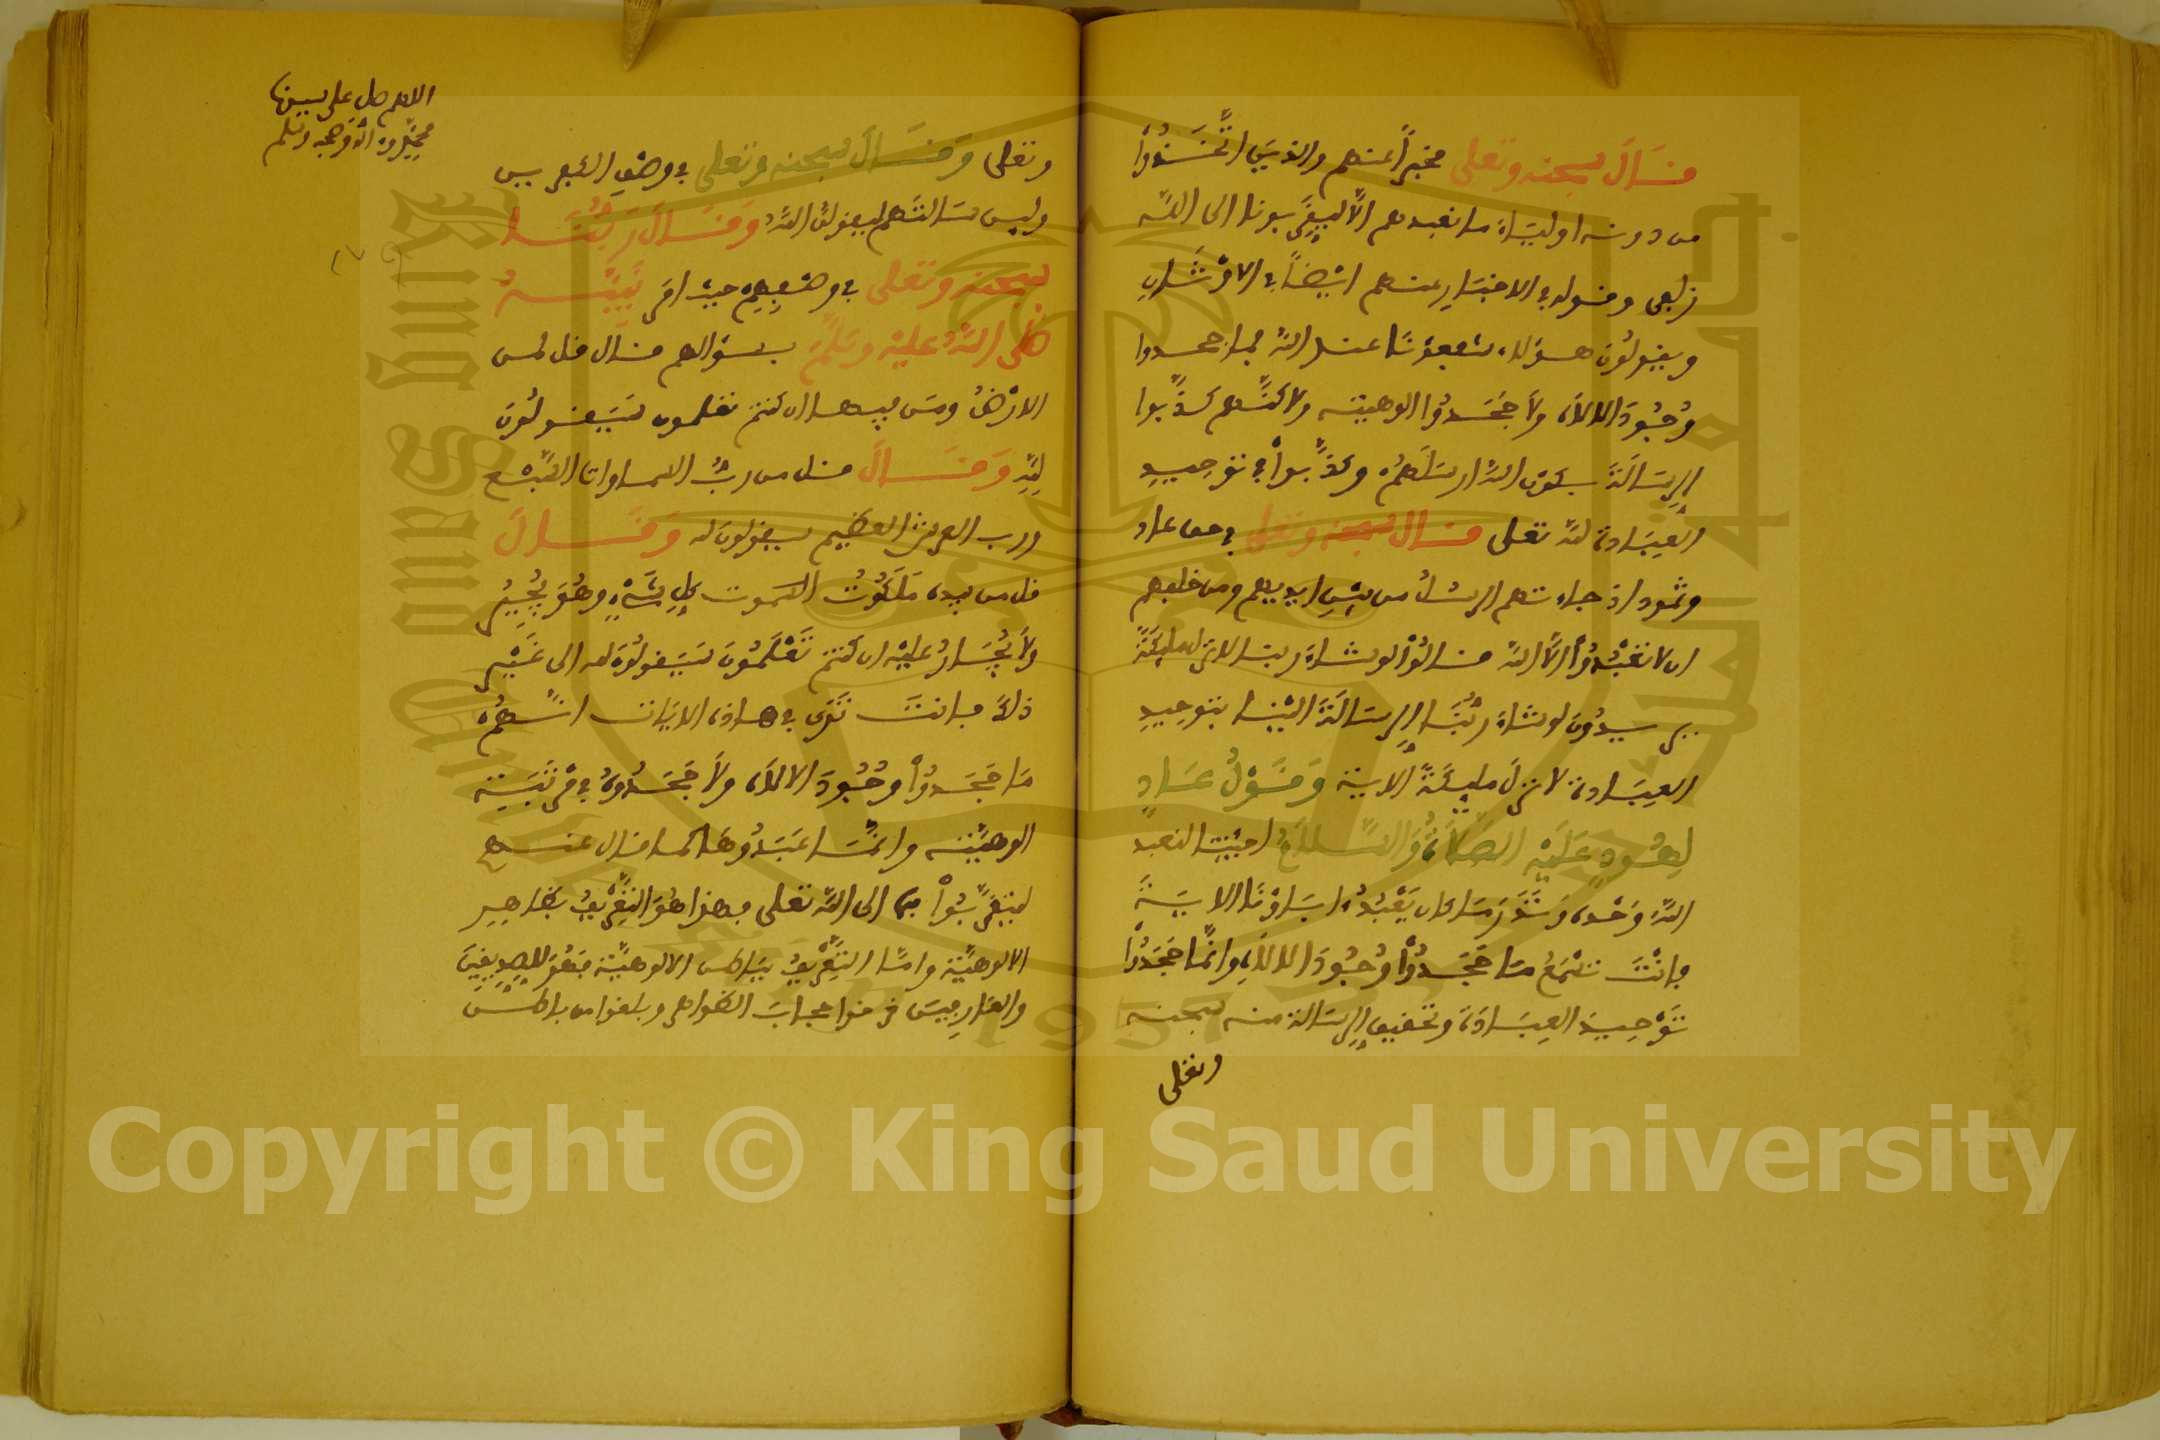 قال سبحنه وتعلى مخبراً عنهم والذين اتَّخَذُواْ
من دونه اولياءَ ما نعبدهم الَّا ليقرِّبونا الى اللَّه
زلفى وقوله في الاخبارِ عنهم ايضاً في الاوثانِ
ويقولُونَ هـؤلاء شفعؤنا عند اللهِ فما جحدوا
وُجُودَ الالاه ولاَ جَحَدُوا الوهيته ولاكنَّهم كذَّبوا
الرِسَالَةَ بكون اللهِ ارسَلَهمْ وكذَّبواْ في توحِيدِ
العِبَادة للّه تعلى قال سبحنه وتعلى في حق عاد
وثمود اذ جاءتهم الرسُلُ من بيْنِ ايديهم ومن خلفهم
ان لا تعْبُدُوٓاْ الاَّ اللّه قالُوْا لو شاءَ ربنا لانزل مليكةً
يريدُونَ لو شاءَ ربُّنَا الرِسَالَةَ اليْنا بتوحيدِ
العِبَادة لانزلَ مليِكَةً الاية وَقَوْلُ عَادٍ
لِهُودٍ عَلَيْهِ الصَّلاَةُ وَالسَّلاَمُ اجيتنا لنعبد
اللّهَ وَحْده وَنَذَرَ مَا كان يَعْبُدُ ءابَاؤنَا الايَةَ
فانْتَ تسْمَعُ مَا جَحَدُواْ وُجُودَ الالاَه وانَّما جَحَدُواْ
تَوْحِيدَ العِبَادَة وتحقيق الرِسَالة منه سبحنه
وتعلى
اللهم صل على سيدنا
محمد وءاله وصحبه وسلم
وتعلى وَقَـالَ سبحنه وتعلى في وصْفِ الكفرين
وليس سَالتَهم ليقولنَّ اللهُ وَقَـالَ رَبُّنَـا
سبحنه وتعلى في وصْفِهِم حيث امَر نَبِيَّـهُ
صلَّى اللهُ عليْه وسَلَّمَ بسؤالهم قال قل لمن
الارْضُ ومن فيهـا ان كنتم تعلمون سَيَقولُونَ
لِلهِ وَقَـالَ قل من ربُّ السماوات السَّبْع
ورب العرش العظيم سيقولون لله وَقَـالَ
قل من بيده مَلَكُوتُ كلِّ شَيْءٍ وهُوَ يُجِيرُ
ولاَ يُجَـارُ عليْه ان كنتم تَعْلَمُونَ سَيَقولُونَ لله الى غَيْرِ
ذلكَ فانتَ تَرَى في هـاذه الايَات انَّـهُمْ
مَا جَحَدُواْ وُجُودَ الالاه ولاَ جَحَدُوهُ في مرْتَبَـةِ
الوهيَّته وانمَّـا عَبَدُوهَا كما قال عنـهم
ليتقرَّبُواْ بها الى اللّه تعلى فهذا هُوَ التَّعْرِيفُ بظاهِرِ
الالوهيَّة وامَّا التَّعْرِيفُ بباطن الالوهيَّة فهُوَ للصِدِيقِينَ
والعَارِفِينَ خرقوا حجابَ الظواهر وبلغوا من باطنِ